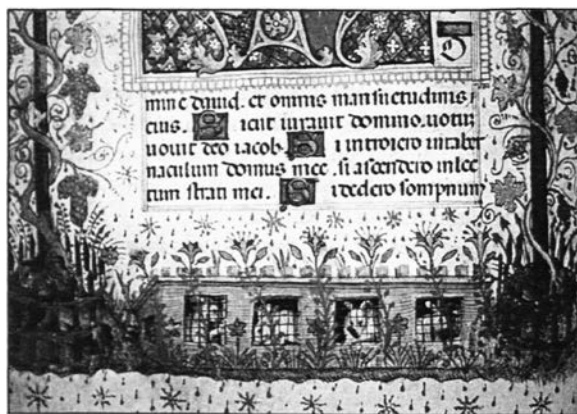 mine dauid. et omnis mansuetudinis
eius. Sicut iurauit domino. uotū
uouit deo iacob. Si introiero in taber
naculum domus mee. si ascendero in lec
tum strati mei. Si dedero sompnum